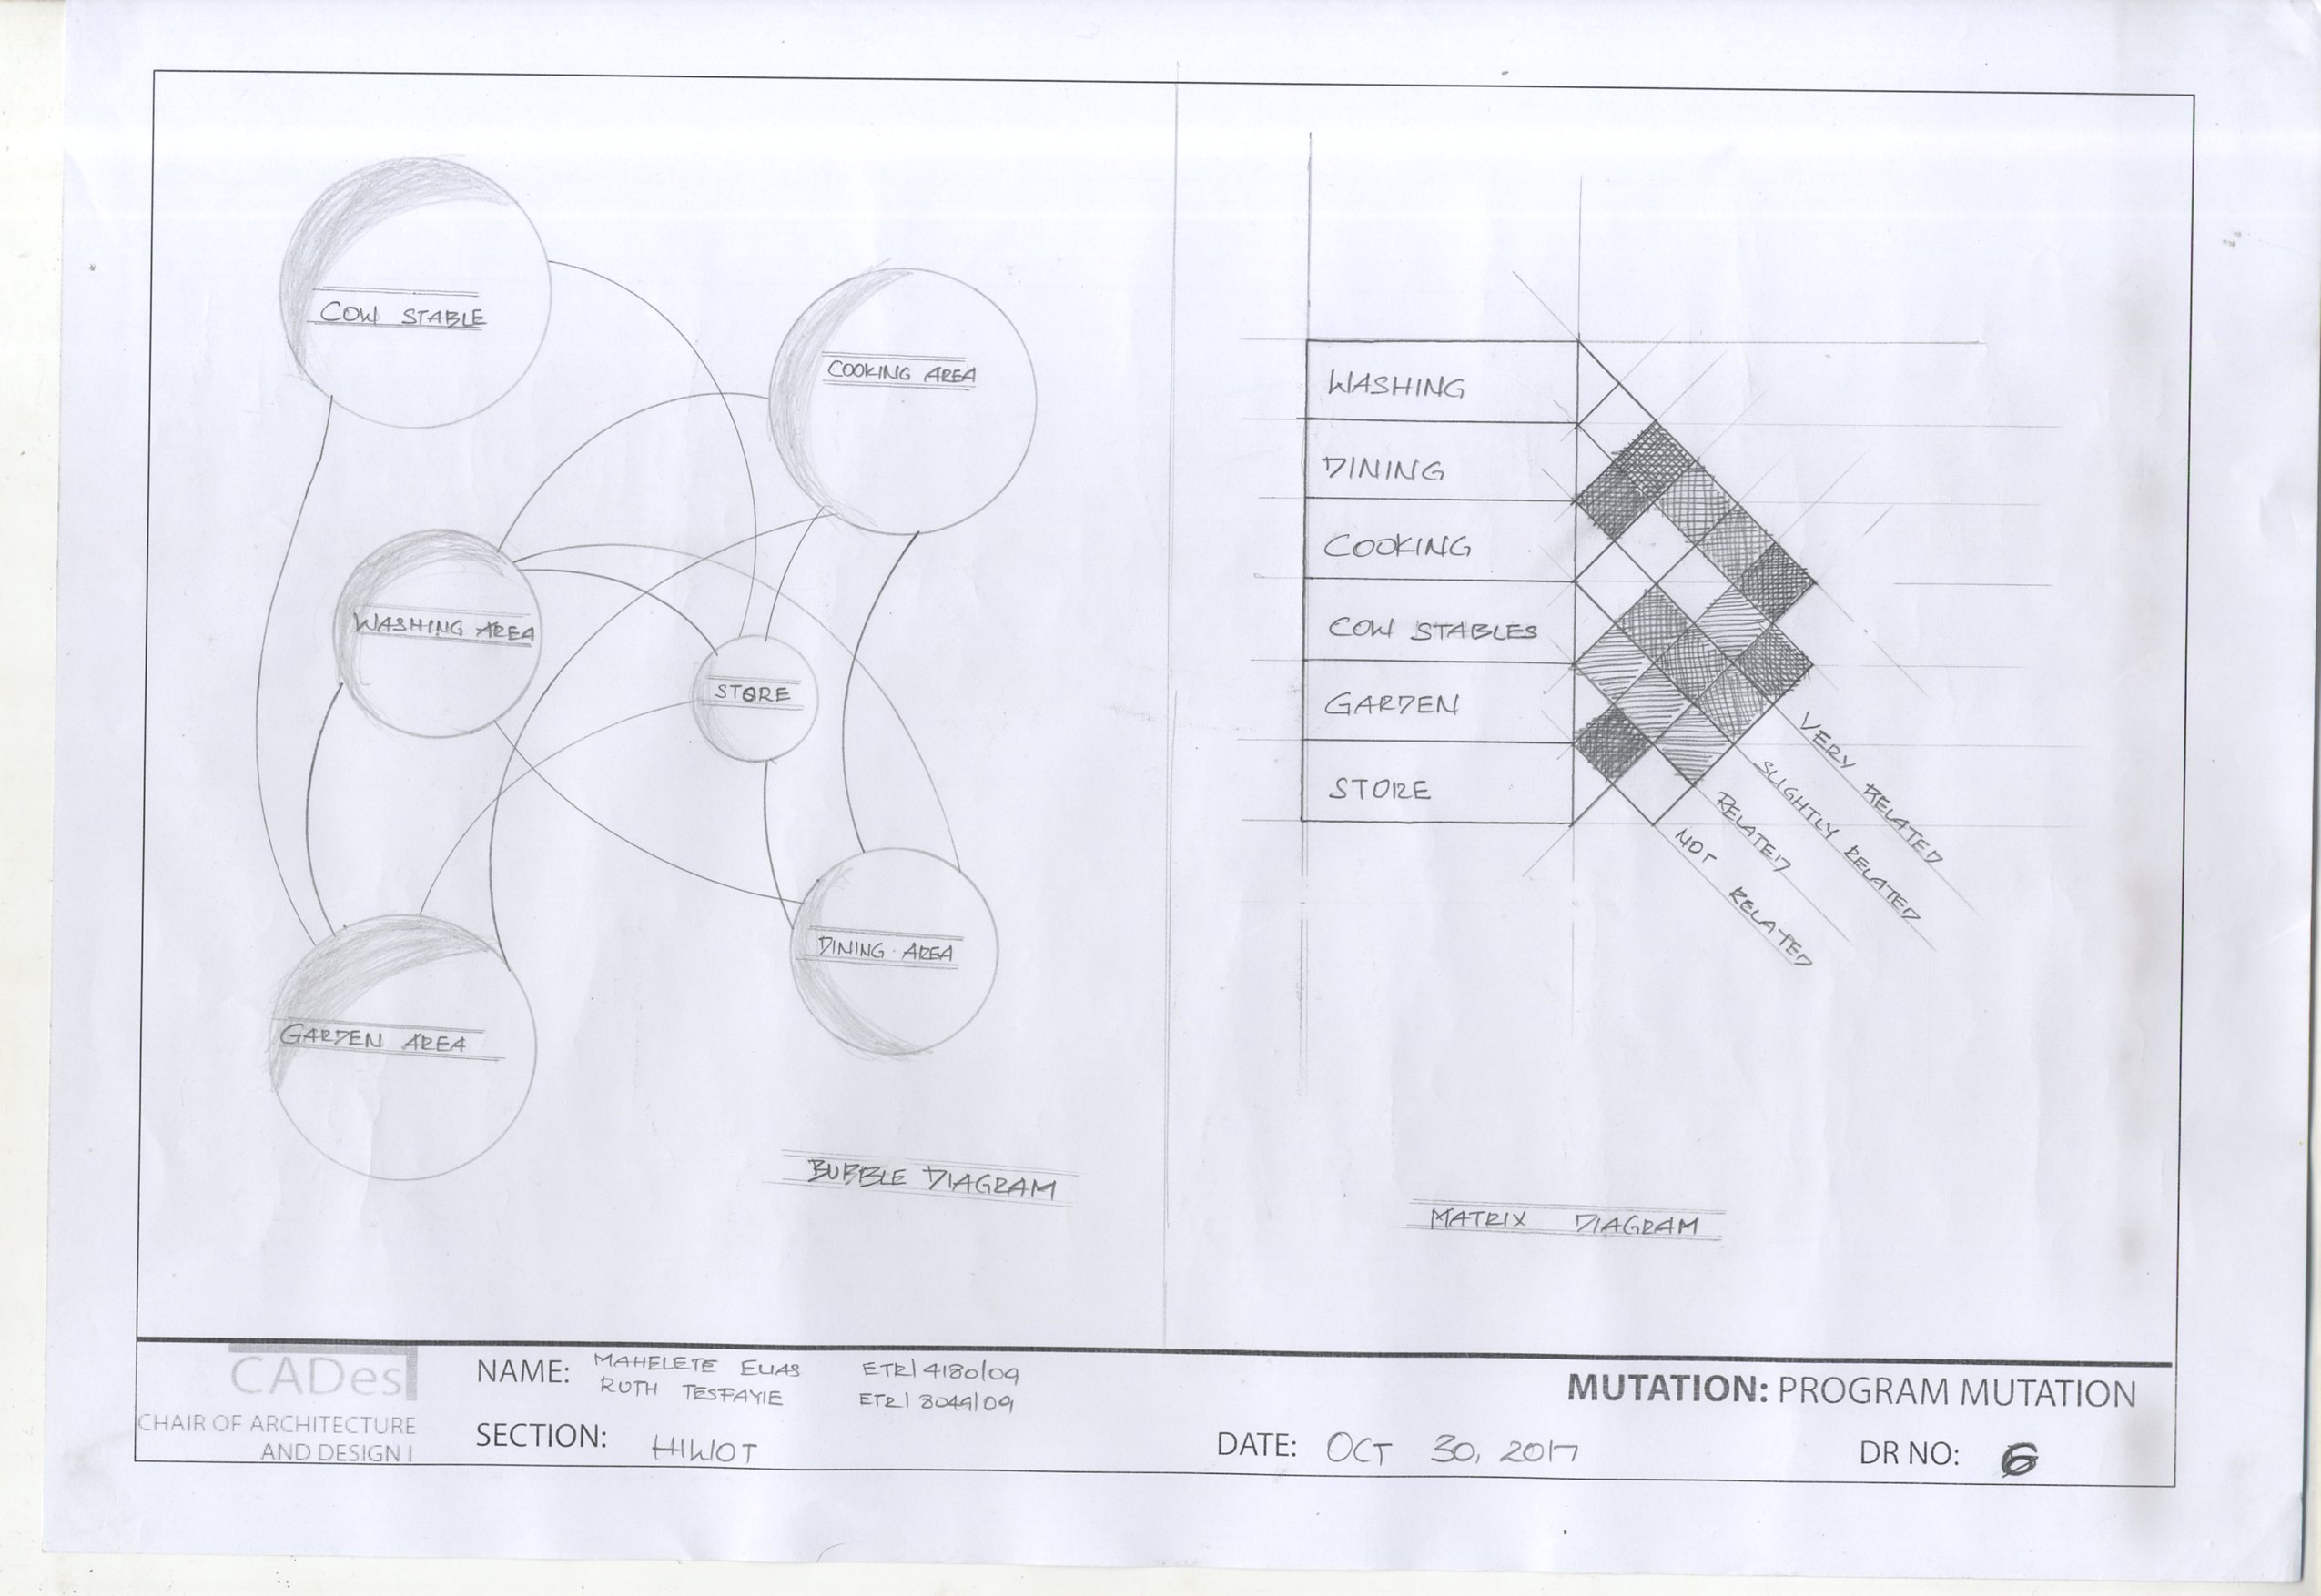 COW STABLE
COOKING AREA
WASHING AREA
STORE
DINING AREA
GARDEN AREA
BUBBLE DIAGRAM
WASHING
DINING
COOKING
COW STABLES
GARDEN
STORE
VERY RELATED
SLIGHTLY RELATED
RELATED
NOT RELATED
MATRIX DIAGRAM
CADes
CHAIR OF ARCHITECTURE
AND DESIGN I
NAME: MAHELETE ELIAS ETR/4180/09
RUTH TESFAYIE ETR/8049/09
SECTION: HIWOT
DATE: OCT 30, 2017
MUTATION: PROGRAM MUTATION
DR NO: 6